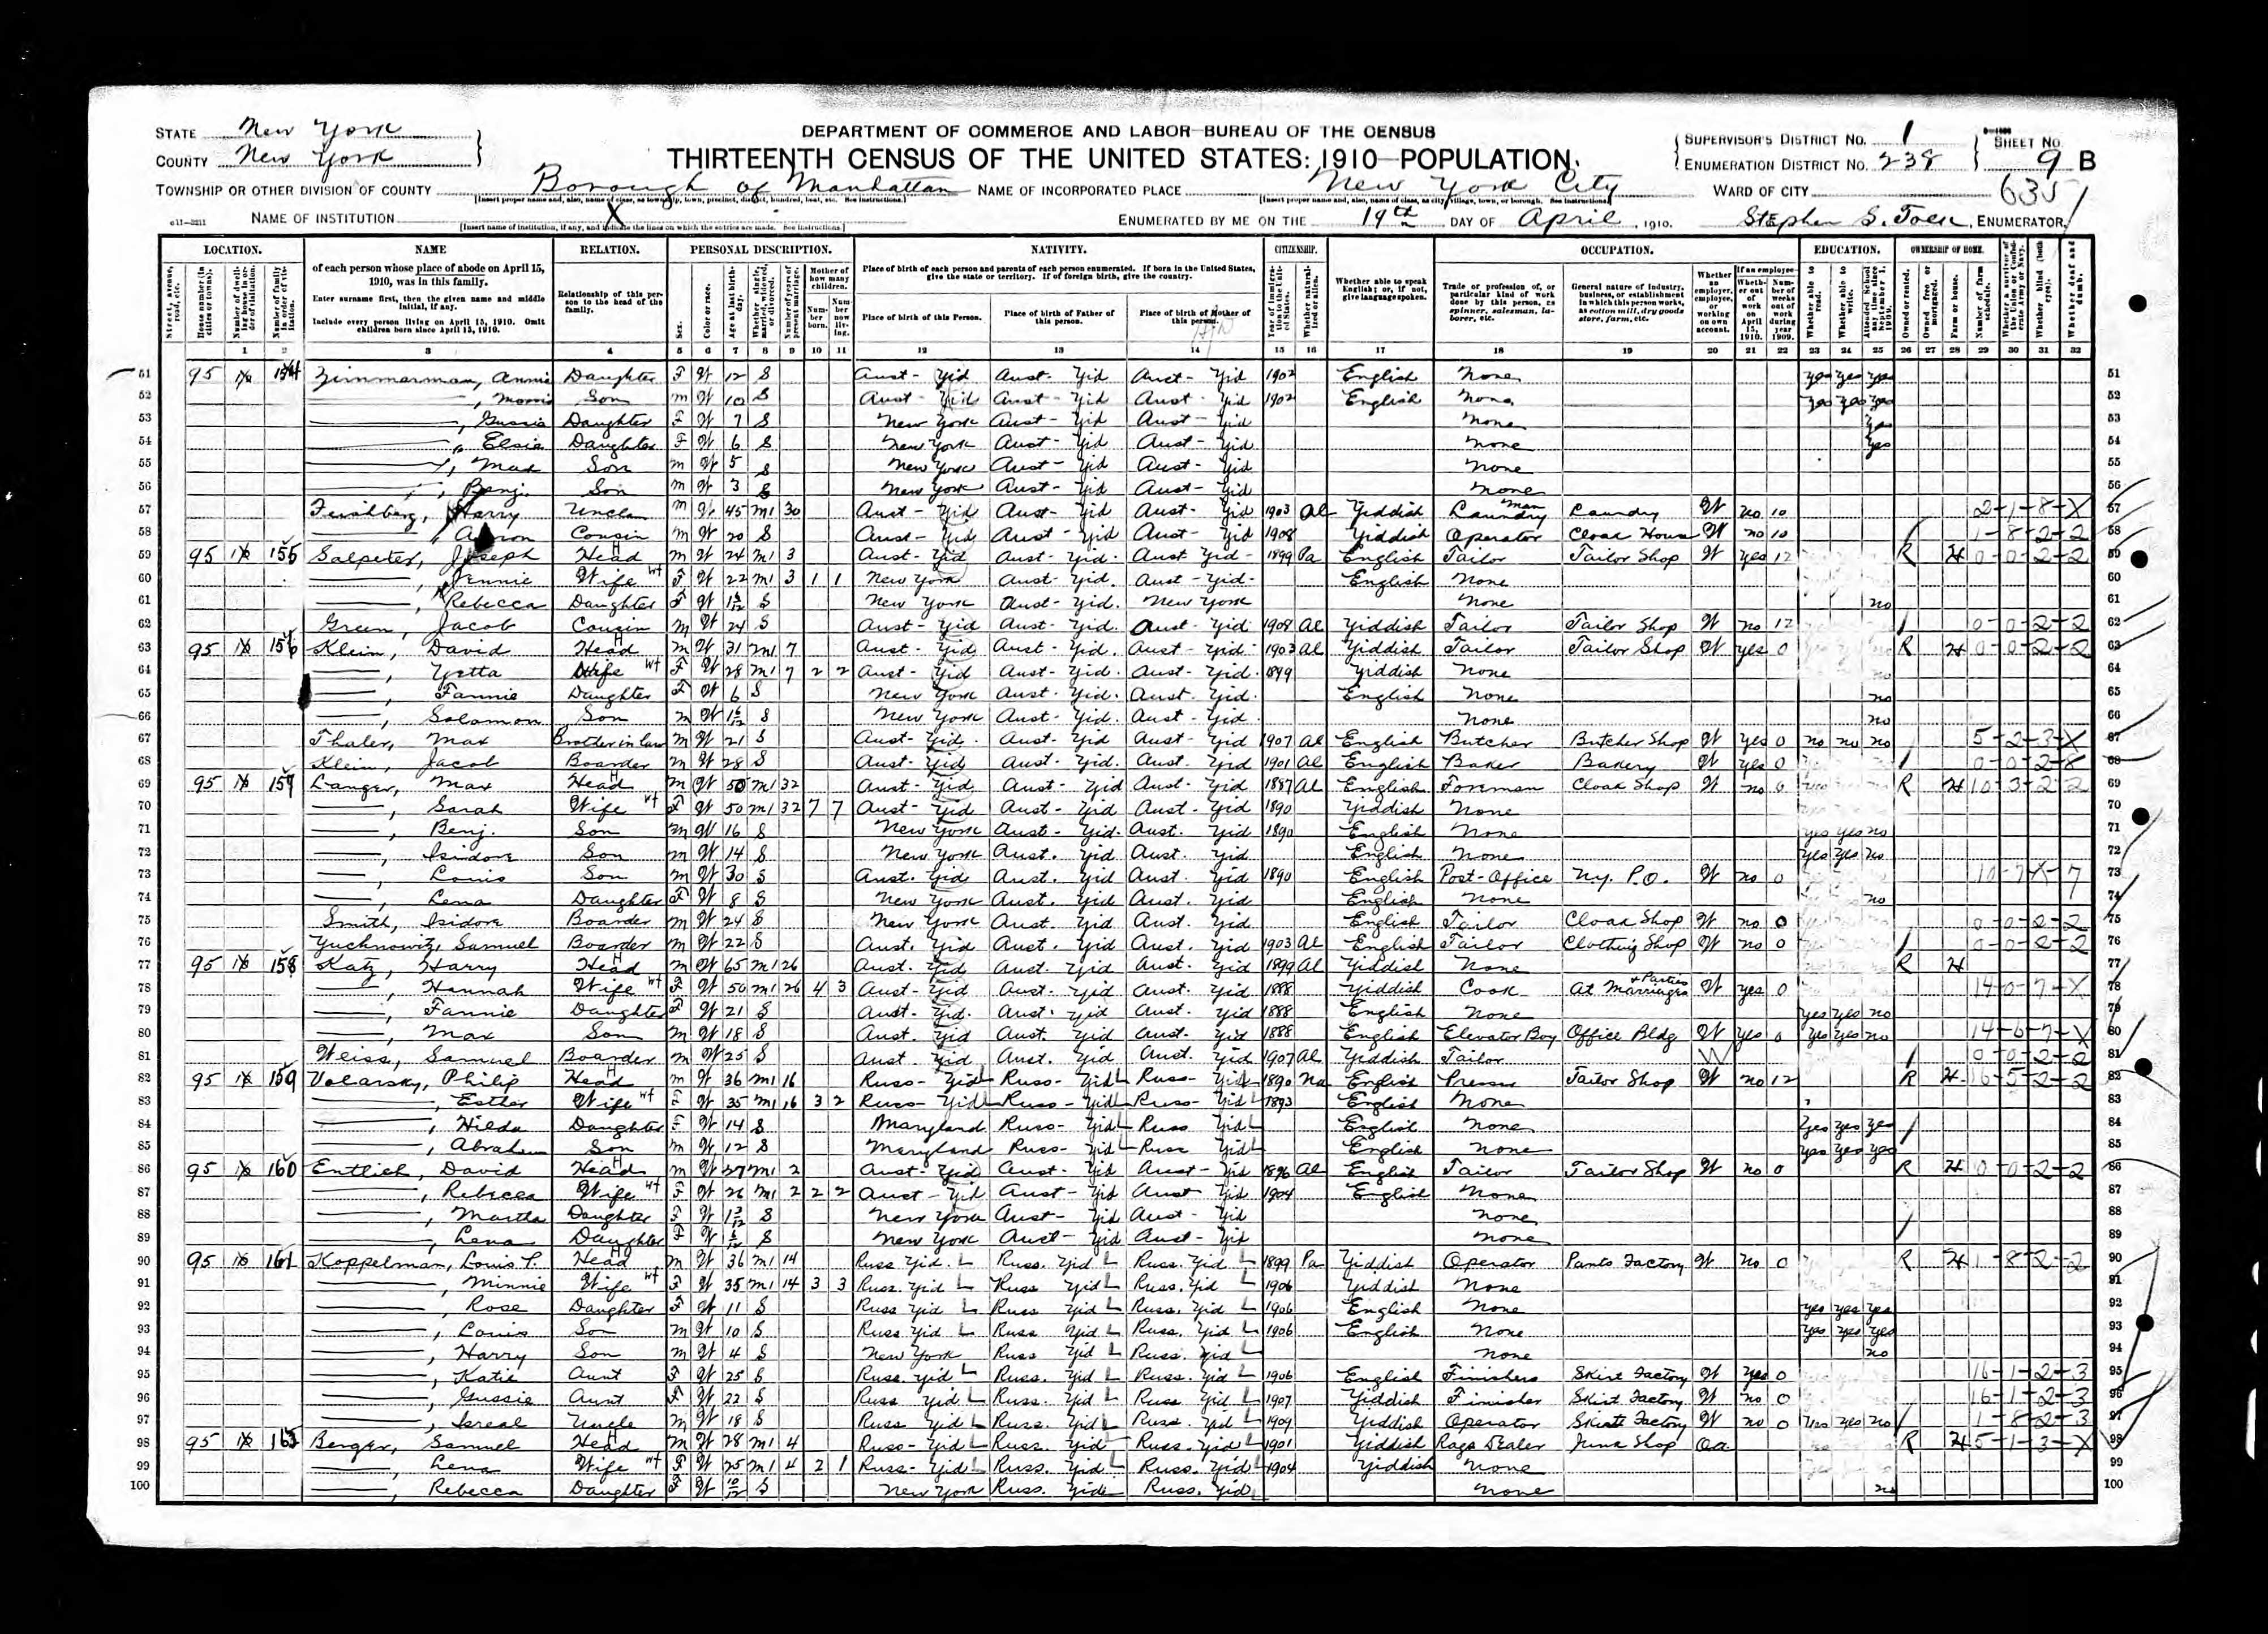 STATE New York
COUNTY New York
DEPARTMENT OF COMMERCE AND LABOR—BUREAU OF THE CENSUS
THIRTEENTH CENSUS OF THE UNITED STATES: 1910—POPULATION
SUPERVISOR'S DISTRICT No. 1
ENUMERATION DISTRICT No. 238
SHEET No. 9 B
TOWNSHIP OR OTHER DIVISION OF COUNTY Borough of Manhattan NAME OF INCORPORATED PLACE New York City WARD OF CITY
6351
NAME OF INSTITUTION X ENUMERATED BY ME ON THE 19th DAY OF April, 1910. Stephen S. ENUMERATOR
LOCATION. NAME RELATION. PERSONAL DESCRIPTION. NATIVITY. CITIZENSHIP. OCCUPATION. EDUCATION. OWNERSHIP OF HOME.
of each person whose place of abode on April 15, 1910, was in this family.
Enter surname first, then the given name and middle initial, if any.
Include every person living on April 15, 1910. Omit children born since April 15, 1910.
Relationship of this person to the head of the family.
Mother of how many children.
Place of birth of each person and parents of each person enumerated. If born in the United States, give the state or territory. If of foreign birth, give the country.
Place of birth of this Person. Place of birth of Father of this person. Place of birth of Mother of this person.
Whether able to speak English; or, if not, give language spoken.
Trade or profession of, or particular kind of work done by this person, as spinner, salesman, laborer, etc.
General nature of industry, business, or establishment in which this person works, as cotton mill, dry goods store, farm, etc.
Whether an employer, employee, or working on own account.
1 2 3 4 5 6 7 8 9 10 11 12 13 14 15 16 17 18 19 20 21 22 23 24 25 26 27 28 29 30 31 32
51 95 Zimmerman, Annie Daughter F W 12 S Aust- Yid Aust- Yid Aust- Yid 1902 English None yes yes yes 51
52 , Morris Son M W 10 S Aust- Yid Aust- Yid Aust- Yid 1902 English None yes yes yes 52
53 , Gussie Daughter F W 7 S New York Aust- Yid Aust- Yid None yes 53
54 , Elsie Daughter F W 6 S New York Aust- Yid Aust- Yid None yes 54
55 , Max Son M W 5 S New York Aust- Yid Aust- Yid None 55
56 , Benj. Son M W 3 S New York Aust- Yid Aust- Yid None 56
57 Harry Uncle M W 45 M1 30 Aust- Yid Aust- Yid Aust- Yid 1903 Al Yiddish Laundry man Laundry W no 10 2-1-8-X 57
58 , Aaron Cousin M W 20 S Aust- Yid Aust- Yid Aust- Yid 1908 Yiddish Operator Cloak House W no 10 1-8-2-2 58
59 95 155 Salpeter, Joseph Head M W 24 M1 3 Aust- Yid Aust- Yid Aust Yid 1899 Pa English Tailor Tailor Shop W yes 12 R H 0-0-2-2 59
60 , Jennie Wife F W 22 M1 3 1 1 New York Aust- Yid Aust- Yid English None 60
61 , Rebecca Daughter F W S New York Aust- Yid New York None no 61
62 Green, Jacob Cousin M W 24 S Aust- Yid Aust- Yid Aust- Yid 1908 Al Yiddish Tailor Tailor Shop W no 12 0-0-2-2 62
63 95 156 Klein, David Head M W 31 M1 7 Aust- Yid Aust- Yid Aust- Yid 1903 Al Yiddish Tailor Tailor Shop W yes 0 R H 0-0-2-2 63
64 , Yetta Wife F W 28 M1 7 2 2 Aust- Yid Aust- Yid Aust- Yid 1899 Yiddish None 64
65 , Fannie Daughter F W 6 S New York Aust- Yid Aust. Yid English None no 65
66 , Solomon Son M W 1 6/12 S New York Aust- Yid Aust- Yid None no 66
67 Thaler, Max Brother in law M W 21 S Aust- Yid Aust- Yid Aust- Yid 1907 Al English Butcher Butcher Shop W yes 0 no no no 5-2-3-X 67
68 Klein, Jacob Boarder M W 28 S Aust- Yid Aust- Yid Aust- Yid 1901 Al English Baker Bakery W yes 0 0-0-2-8 68
69 95 157 Langer, Max Head M W 50 M1 32 Aust- Yid Aust- Yid Aust- Yid 1887 Al English Foreman Cloak Shop W no 6 R H 10-3-2-2 69
70 , Sarah Wife F W 50 M1 32 7 7 Aust- Yid Aust- Yid Aust- Yid 1890 Yiddish None 70
71 , Benj. Son M W 16 S New York Aust- Yid Aust. Yid 1890 English None yes yes no 71
72 , Isidore Son M W 14 S New York Aust. Yid Aust. Yid English None yes yes no 72
73 , Louis Son M W 30 S Aust. Yid Aust. Yid Aust. Yid 1890 English Post-Office N.Y. P.O. W no 0 73
74 , Lena Daughter F W 8 S New York Aust. Yid Aust. Yid English None no 74
75 Smith, Isidore Boarder M W 24 S New York Aust. Yid Aust. Yid English Tailor Cloak Shop W no 0 0-0-2-2 75
76 Yuchnowitz, Samuel Boarder M W 22 S Aust. Yid Aust. Yid Aust. Yid 1903 Al English Tailor Clothing Shop W no 0 0-0-2-2 76
77 95 158 Katz, Harry Head M W 65 M1 26 Aust. Yid Aust. Yid Aust. Yid 1899 Al Yiddish None R H 77
78 , Hannah Wife F W 50 M1 26 4 3 Aust- Yid Aust- Yid Aust. Yid 1888 Yiddish Cook At Marriages + Parties W yes 0 14-0-7-X 78
79 , Fannie Daughter F W 21 S Aust- Yid Aust. Yid Aust. Yid 1888 English None yes yes no 79
80 , Max Son M W 18 S Aust. Yid Aust. Yid Aust. Yid 1888 English Elevator Boy Office Bldg W yes 0 yes yes no 14-6-7-X 80
81 Weiss, Samuel Boarder M W 25 S Aust Yid Aust. Yid Aust. Yid 1907 Al Yiddish Tailor W 0-0-2-2 81
82 95 159 Volarsky, Philip Head M W 36 M1 16 Russ- Yid Russ- Yid Russ- Yid 1890 Na English Presser Tailor Shop W no 12 R H 16-5-2-2 82
83 , Esther Wife F W 35 M1 16 3 2 Russ- Yid Russ- Yid Russ- Yid 1893 English None 83
84 , Hilda Daughter F W 14 S Maryland Russ- Yid Russ Yid English None yes yes yes 84
85 , Abraham Son M W 12 S Maryland Russ- Yid Russ Yid English None yes yes yes 85
86 95 160 Entlich, David Head M W 27 M1 2 Aust- Yid Aust- Yid Aust- Yid 1896 Al English Tailor Tailor Shop W no 0 R H 0-0-2-2 86
87 , Rebecca Wife F W 26 M1 2 2 2 Aust- Yid Aust- Yid Aust Yid 1904 English None 87
88 , Martha Daughter F W 1 3/12 S New York Aust- Yid Aust- Yid None 88
89 , Lena Daughter F W S New York Aust- Yid Aust- Yid None 89
90 95 161 Koppelman, Louis P. Head M W 36 M1 14 Russ Yid L Russ. Yid L Russ. Yid L 1899 Pa Yiddish Operator Pants Factory W no 0 R H 1-8-2-2 90
91 , Minnie Wife F W 35 M1 14 3 3 Russ. Yid L Russ Yid L Russ. Yid L 1906 Yiddish None 91
92 , Rose Daughter F W 11 S Russ Yid L Russ Yid L Russ. Yid L 1906 English None yes yes yes 92
93 , Louis Son M W 10 S Russ Yid L Russ Yid L Russ. Yid L 1906 English None yes yes yes 93
94 , Harry Son M W 4 S New York Russ Yid L Russ. Yid L None no 94
95 , Katie Aunt F W 25 S Russ. Yid L Russ. Yid L Russ. Yid L 1906 English Finishers Skirt Factory W yes 0 16-1-2-3 95
96 , Gussie Aunt F W 22 S Russ Yid L Russ. Yid L Russ Yid L 1907 Yiddish Finisher Skirt Factory W no 0 16-1-2-3 96
97 , Isreal Uncle M W 18 S Russ Yid L Russ. Yid L Russ. Yid L 1909 Yiddish Operator Skirt Factory W no 0 yes yes no 1-8-2-3 97
98 95 162 Berger, Samuel Head M W 28 M1 4 Russ- Yid L Russ. Yid Russ. Yid L 1901 Yiddish Rags Dealer Junk Shop Oa R H 5-1-3-X 98
99 , Lena Wife F W 25 M1 4 2 1 Russ- Yid L Russ. Yid L Russ. Yid L 1904 Yiddish None 99
100 , Rebecca Daughter F W 10/12 S New York Russ. Yid Russ. Yid None no 100